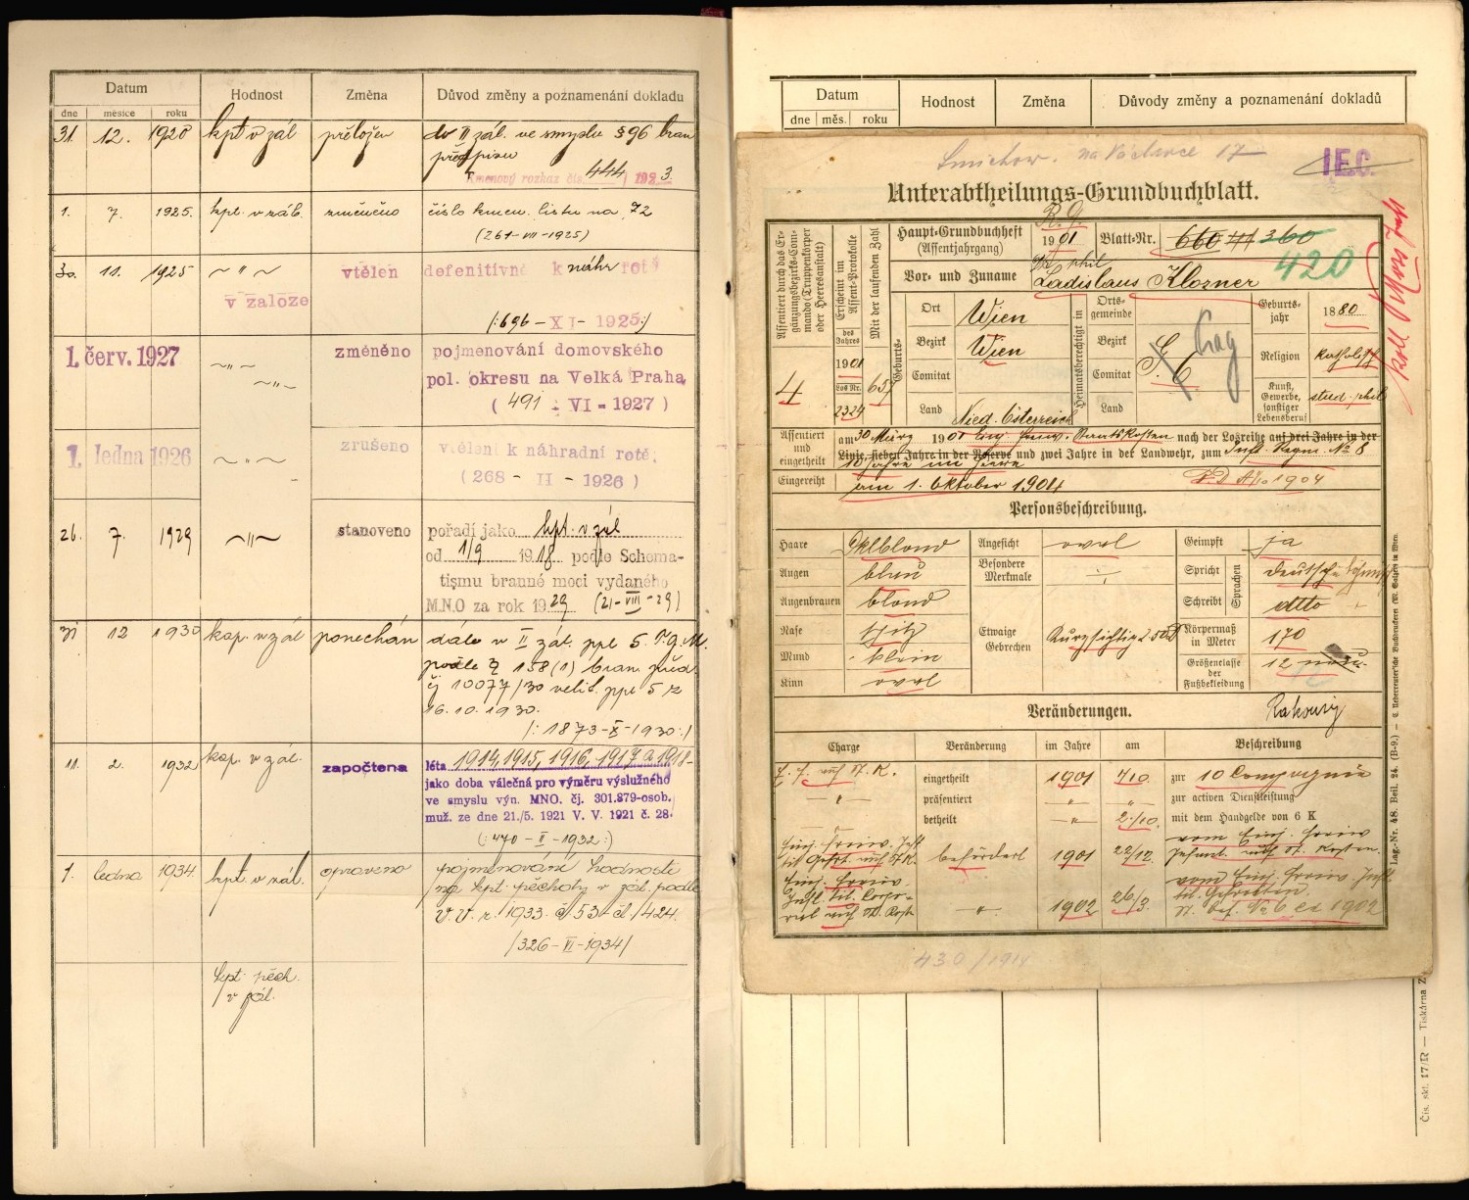 Datum
Hodnost
Změna
Důvod změny a poznamenání dokladu
dne měsíce roku
31. 12. 1920 kpt v zál přeložen do II zál. ve smyslu § 96 bran
předpisu
Kmenový rozkaz čís. 444 / 1923.
1. 7. 1925. kpt. v záb. změněno číslo kmen. listu na 72
(261-VII-1925)
30. 11. 1925 〃 vtělen defenitivně k náhr rotě
v záloze
(:696-XI-1925:)
1. červ. 1927 〃 změněno pojmenování domovského
〃 pol. okresu na Velká Praha
(491 - VI - 1927)
1. ledna 1926 〃 zrušeno vtělení k náhradní rotě.
(268 - II - 1926)
26. 7. 1929 〃 stanoveno pořadí jako kpt. v zál
od 1/9 1918 podle Schema-
tismu branné moci vydaného
M.N.O za rok 1929 (21-VIII-29)
31 12 1930 kap. v zál ponechán dále v II zál. ppl 5. T.G.M.
podle § 158 (1) bran. před.
čj 10077/30 velit. ppl 5 z
16.10.1930.
/:1873-X-1930:/
11. 2. 1932 kap. v zál. započtena léta 1914, 1915, 1916, 1917 a 1918-
jako doba válečná pro výměru výslužného
ve smyslu výn. MNO. čj. 301.879-osob.
muž. ze dne 21./5. 1921 V. V. 1921 č. 28.
(:470-II-1932:)
1. ledna 1934 kpt. v zál. opraveno pojmenování hodnosti
na kpt. pěchoty v zál. podle
V.V. r. 1933 č 53 čl / 424.
/326-VI-1934/
kpt. pěch.
v zál.
Datum
Hodnost
Změna
Důvody změny a poznamenání dokladů
dne měs. roku
Smichow. na Václavce 17
I E.C.
Unterabtheilungs-Grundbuchblatt.
Assentiert durch das Ergänzungsbezirks-Commando (Truppenkörper oder Heeresanstalt)
4
Erscheint im Assent-Protokolle
des Jahres
1901
Los Nr.
2324
Mit der laufenden Zahl
657
Haupt-Grundbuchheft
(Assentjahrgang)
R. G.
1901
Blatt-Nr.
660 111 360
420
Vor- und Zuname
Ladislaus Klozner
Geburts-
Ort Wien
Bezirk Wien
Comitat
Land Nied. Österreich
Heimatsberechtigt in
Ortsgemeinde
Bezirk
Comitat
Land
Prag
Geburtsjahr 1880
Religion katholisch
Kunst, Gewerbe, sonstiger Lebensberuf stud. phil
Assentiert und eingetheilt
am 30 März 1901 Einj. Freiw. Staatskosten nach der Losreihe auf drei Jahre in der
Linie, sieben Jahre in der Reserve und zwei Jahre in der Landwehr, zum Inft. Regmt. No 8
10 Jahre im Heere
Eingereiht am 1. Oktober 1904
Personsbeschreibung.
Haare Dklblond
Augen blau
Augenbrauen blond
Nase spitz
Mund klein
Kinn oval
Angesicht oval
Besondere Merkmale
Etwaige Gebrechen Kurzsichtig
Geimpft ja
Spricht
Schreibt
Sprachen
deutsch
detto
Körpermaß in Meter 170
Größenclasse der Fußbekleidung 12
Veränderungen.
Rakousy
Charge
Veränderung
im Jahre
am
Beschreibung
E. F. auf St. K. eingetheilt 1901 7/10. zur 10 Compagnie
präsentiert 〃 〃 zur activen Dienstleistung
betheilt 〃 2/10. mit dem Handgelde von 6 K
Einj. Freiw. Inft
tit Gefrt auf St. K. befördert 1901 22/12. vom Einj. Freiw
Infant. auf St. Kosten.
Einj. Freiw.
Inft. tit. Corpo-
ral auf St. Kost 〃 1902 26/3. vom Einj. Freiw. Inft
tit. Gefreiten
430/1914
Lag.-Nr. 48. Beil. 24 (B-9.)
Čís. skl. 17/IV — Tiskárna